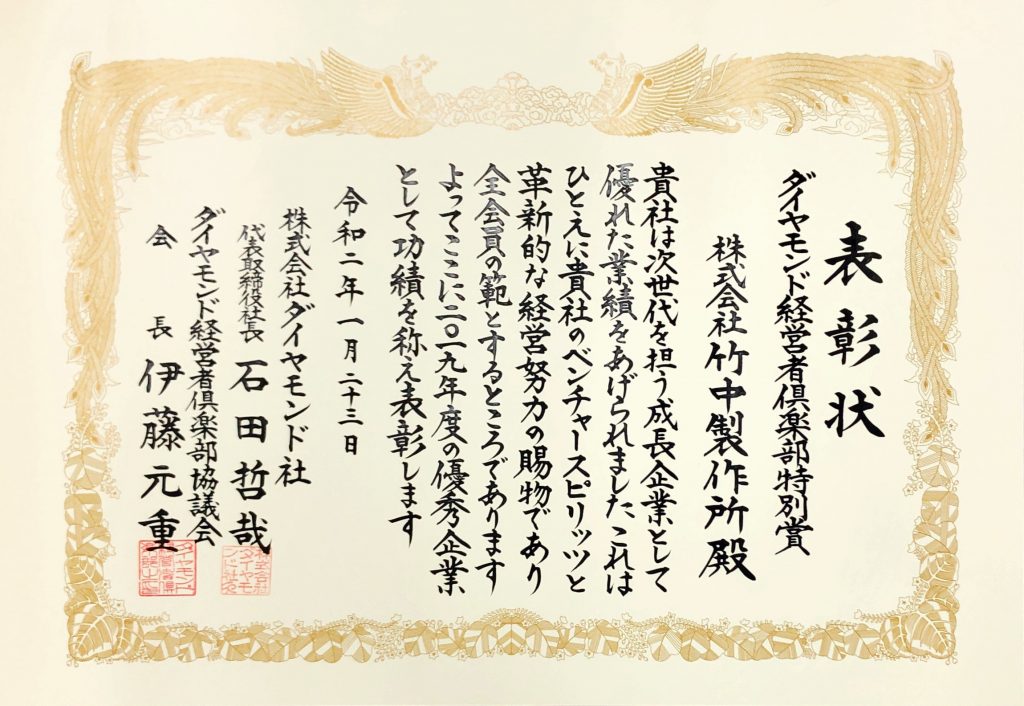 表彰状
ダイヤモンド経営者倶楽部特別賞
株式会社竹中製作所殿
貴社は次世代を担う成長企業として
優れた業績をあげられました これは
ひとえに貴社のベンチャースピリッツと
革新的な経営努力の賜物であり
全会員の範とするところであります
よってここに二〇一九年度の優秀企業
として功績を称え表彰します
令和二年一月二十三日
株式会社ダイヤモンド社
代表取締役社長 石田哲哉
ダイヤモンド経営者倶楽部協議会
会長 伊藤元重